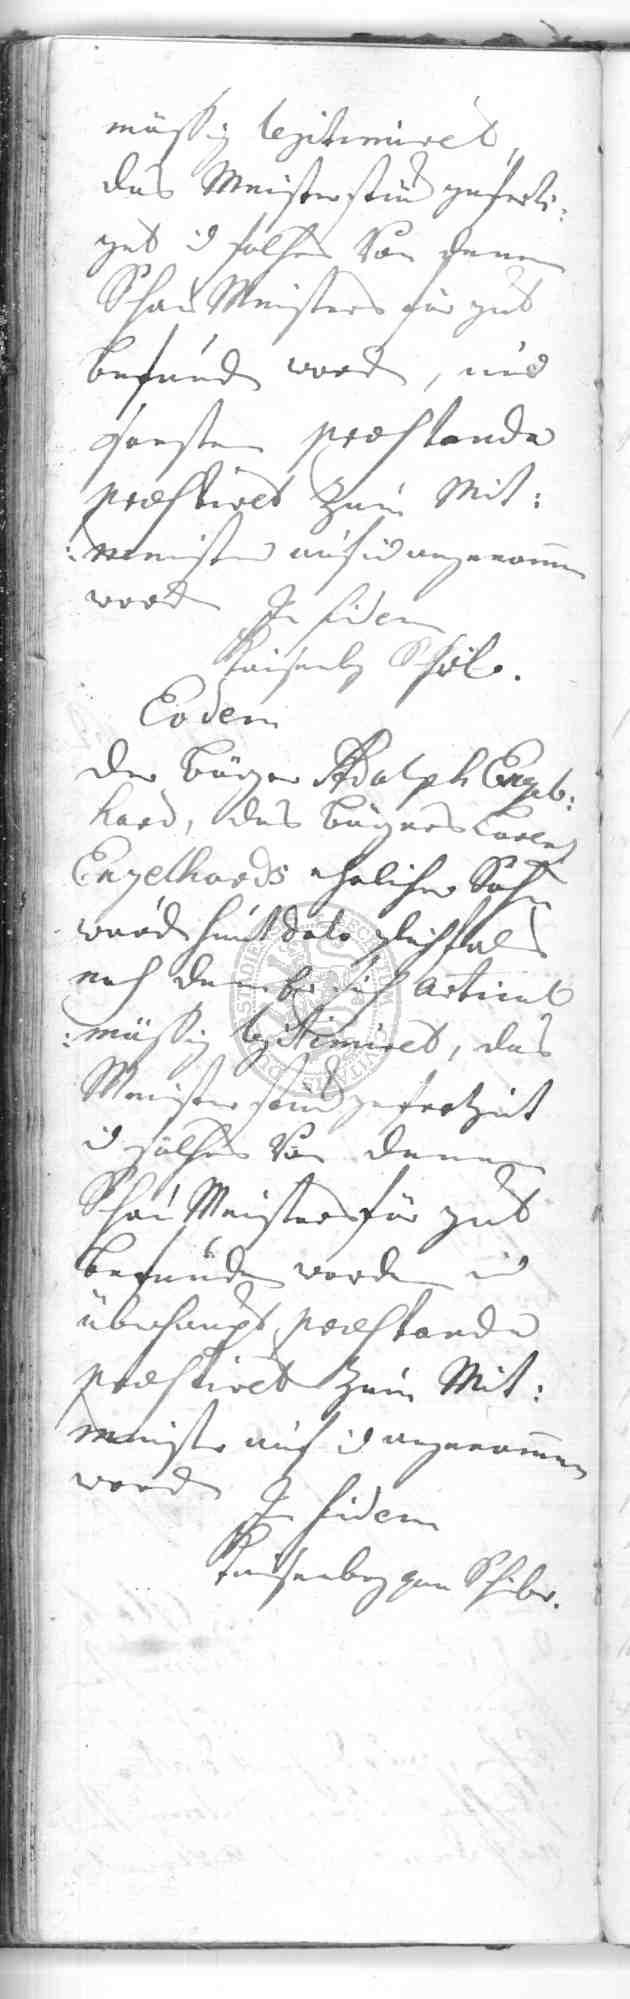 mässig legitimiret,
das Meisterstück geferti:
get u solches von denen
Schau Meisters für gut
befunden worden, und
sonsten præstanda
præstiret zum Mit:
:meister auf u angenommen
worden In fidem
Eodem
Der bürger Adolph Engel:
hard, des bürgers
Engelhards ehelicher Sohn
wurde heut dato gleichfals
nach dem er sich articul
:mässig legitimiret, das
Meisterstück gefertiget
u solches von denen
Schau Meisters für gut
befunden worden u
überhaupt præstanda
præstiret zum Mit:
meister auf u angenommen
worden In fidem